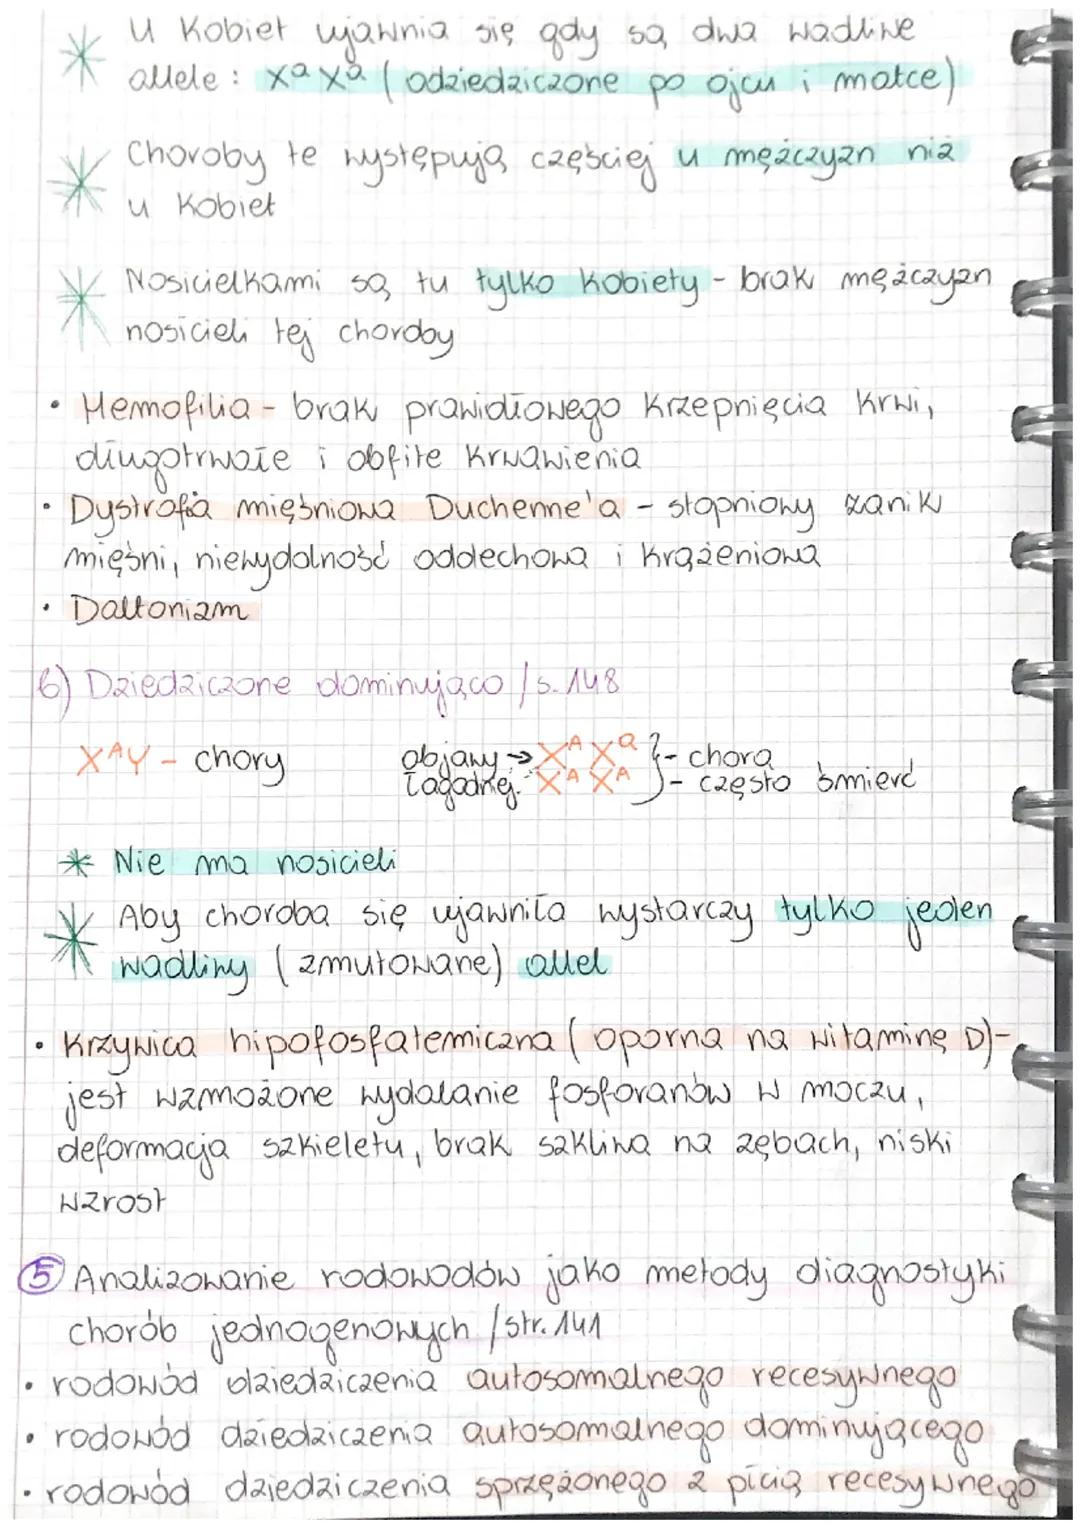 U Kobiet ujawnia się gdy są dwa wadliwe
allele: XᵃXᵃ (odziedziczone po ojcu i matce)
Choroby te występują częściej u mężczyzn niż
u Kobiet
Nosicielkami są tu tylko Kobiety - brak mężczyzn
nosicieli tej choroby
• Hemofilia - brak prawidłowego Krzepnięcia Krwi,
długotrwałe i obfite Krwawienia
• Dystrofia mięśniowa Duchenne'a - stopniowy zanik
mięśni, niewydolność oddechowa i Krążeniowa
• Daltonizm
6) Dziedziczone dominująco /s. 148
XᴬY - chory
objawy → XᴬXᵃ } - chora
łagodniej. XᴬXᴬ - często śmierć
* Nie ma nosicieli
* Aby choroba się ujawniła wystarczy tylko jeden
wadliwy (zmutowane) allel
• Krzywica hipofosfatemiczna (oporna na witaminę D)-
jest wzmożone wydalanie fosforanów w moczu,
deformacja szkieletu, brak szkliwa na zębach, niski
wzrost
5 Analizowanie rodowodów jako metody diagnostyki
chorób jednogenowych /str. 141
• rodowód dziedziczenia autosomalnego recesywnego
• rodowód dziedziczenia autosomalnego dominującego
• rodowód dziedziczenia sprzężonego z płcią recesywnego